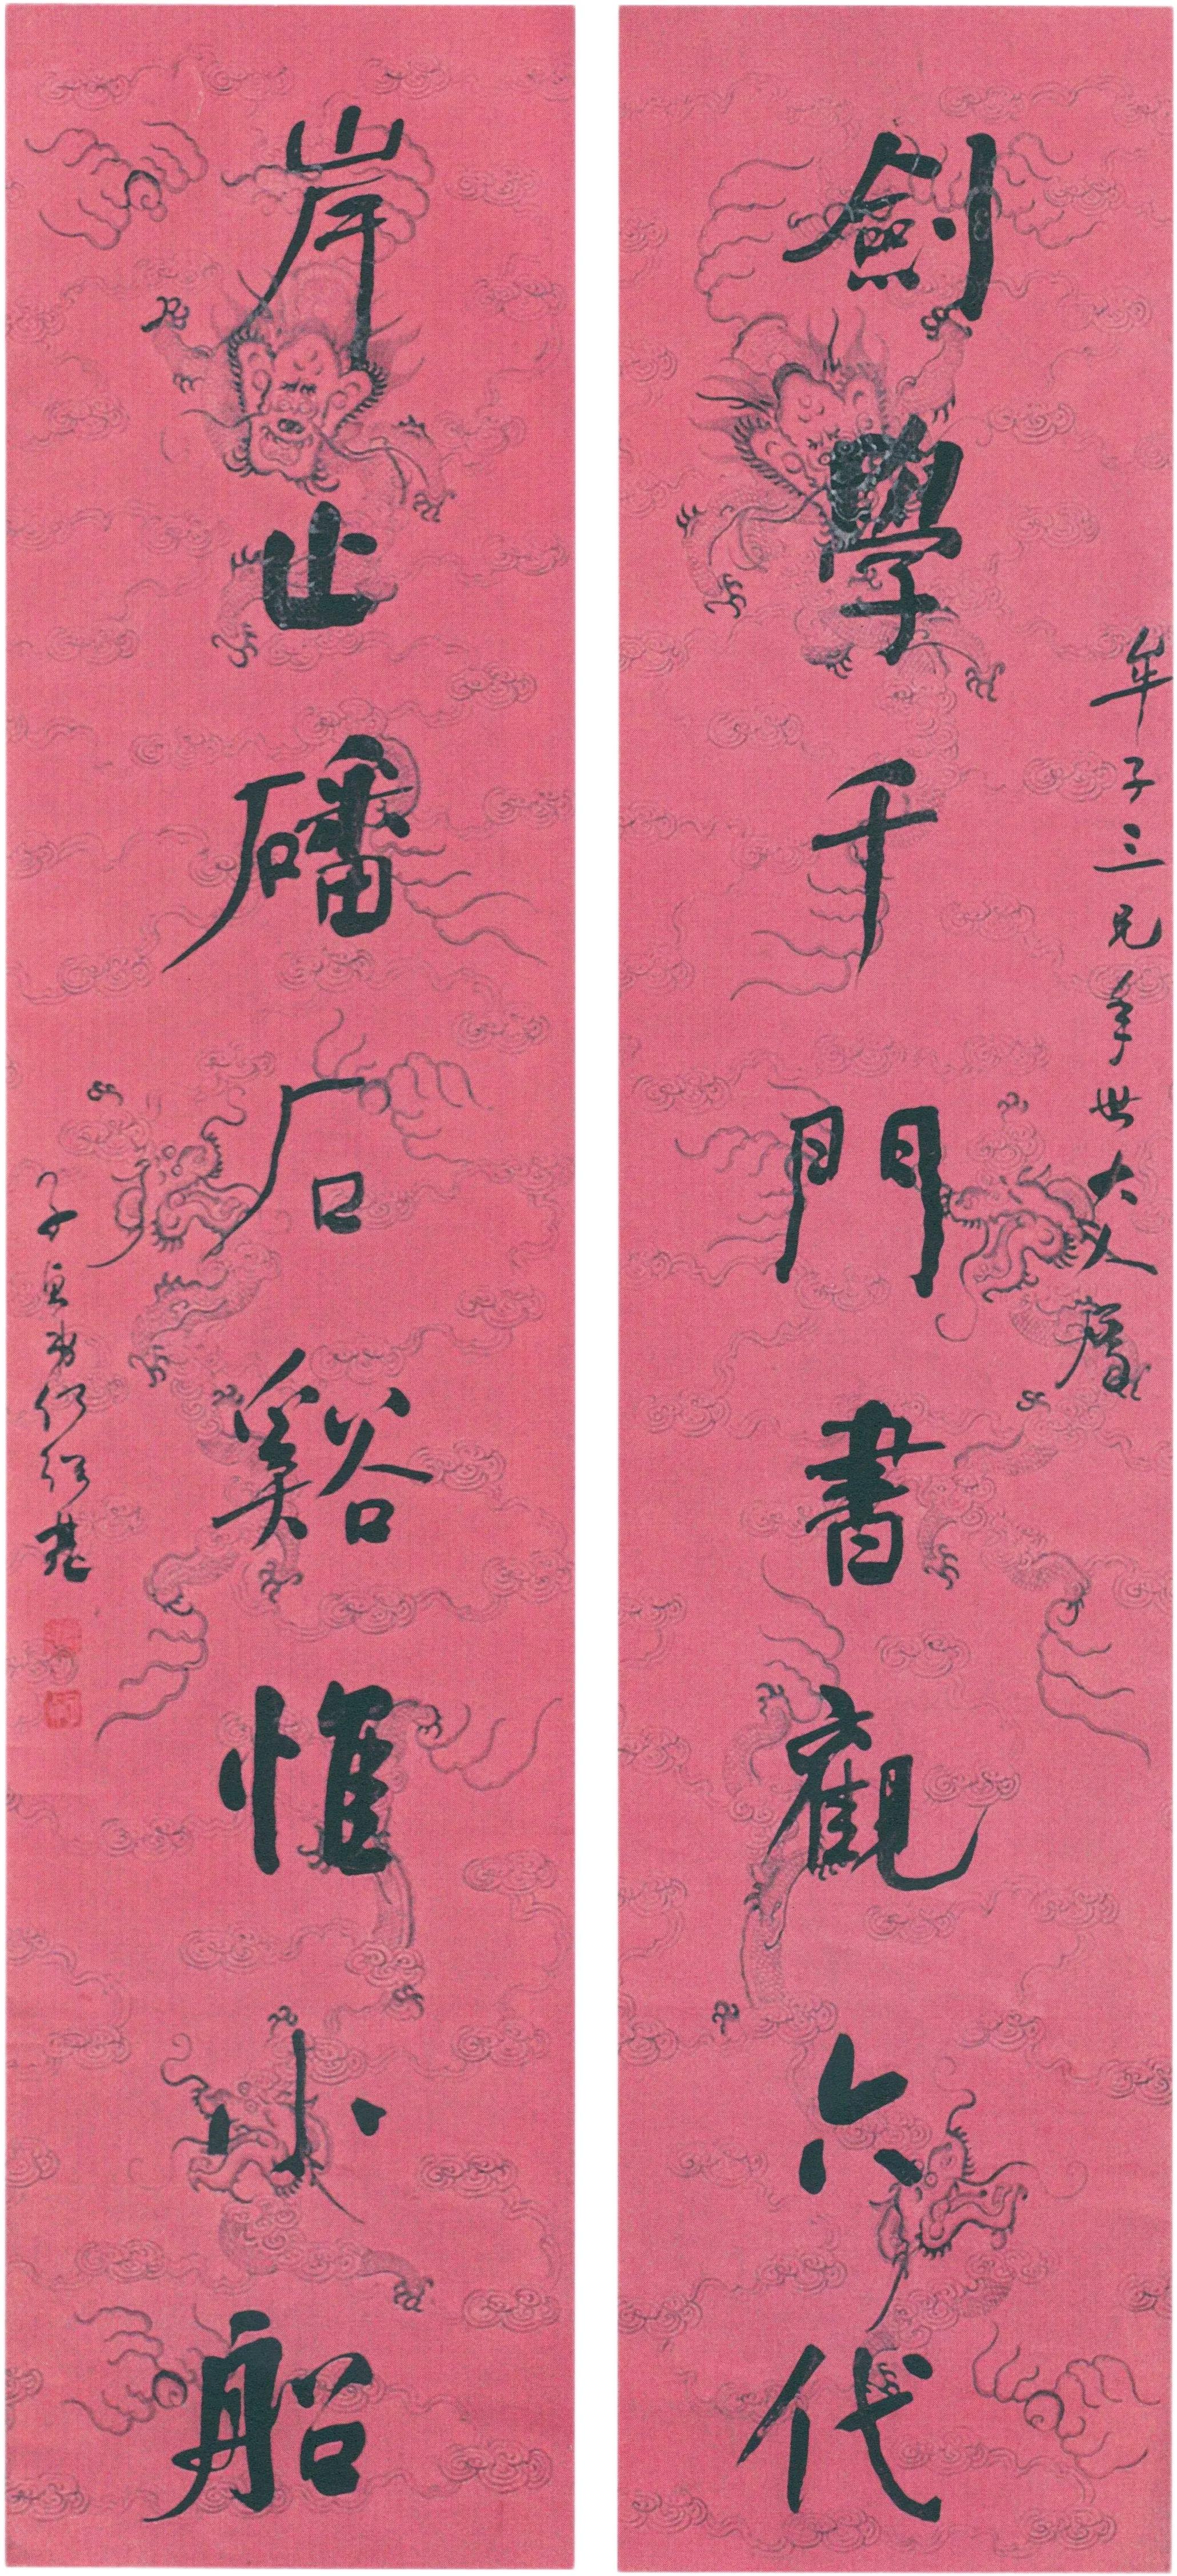 牟子三兄年世大人属
劍學千門書觀六代
岸止磻石谿惟小船
子貞弟何紹基